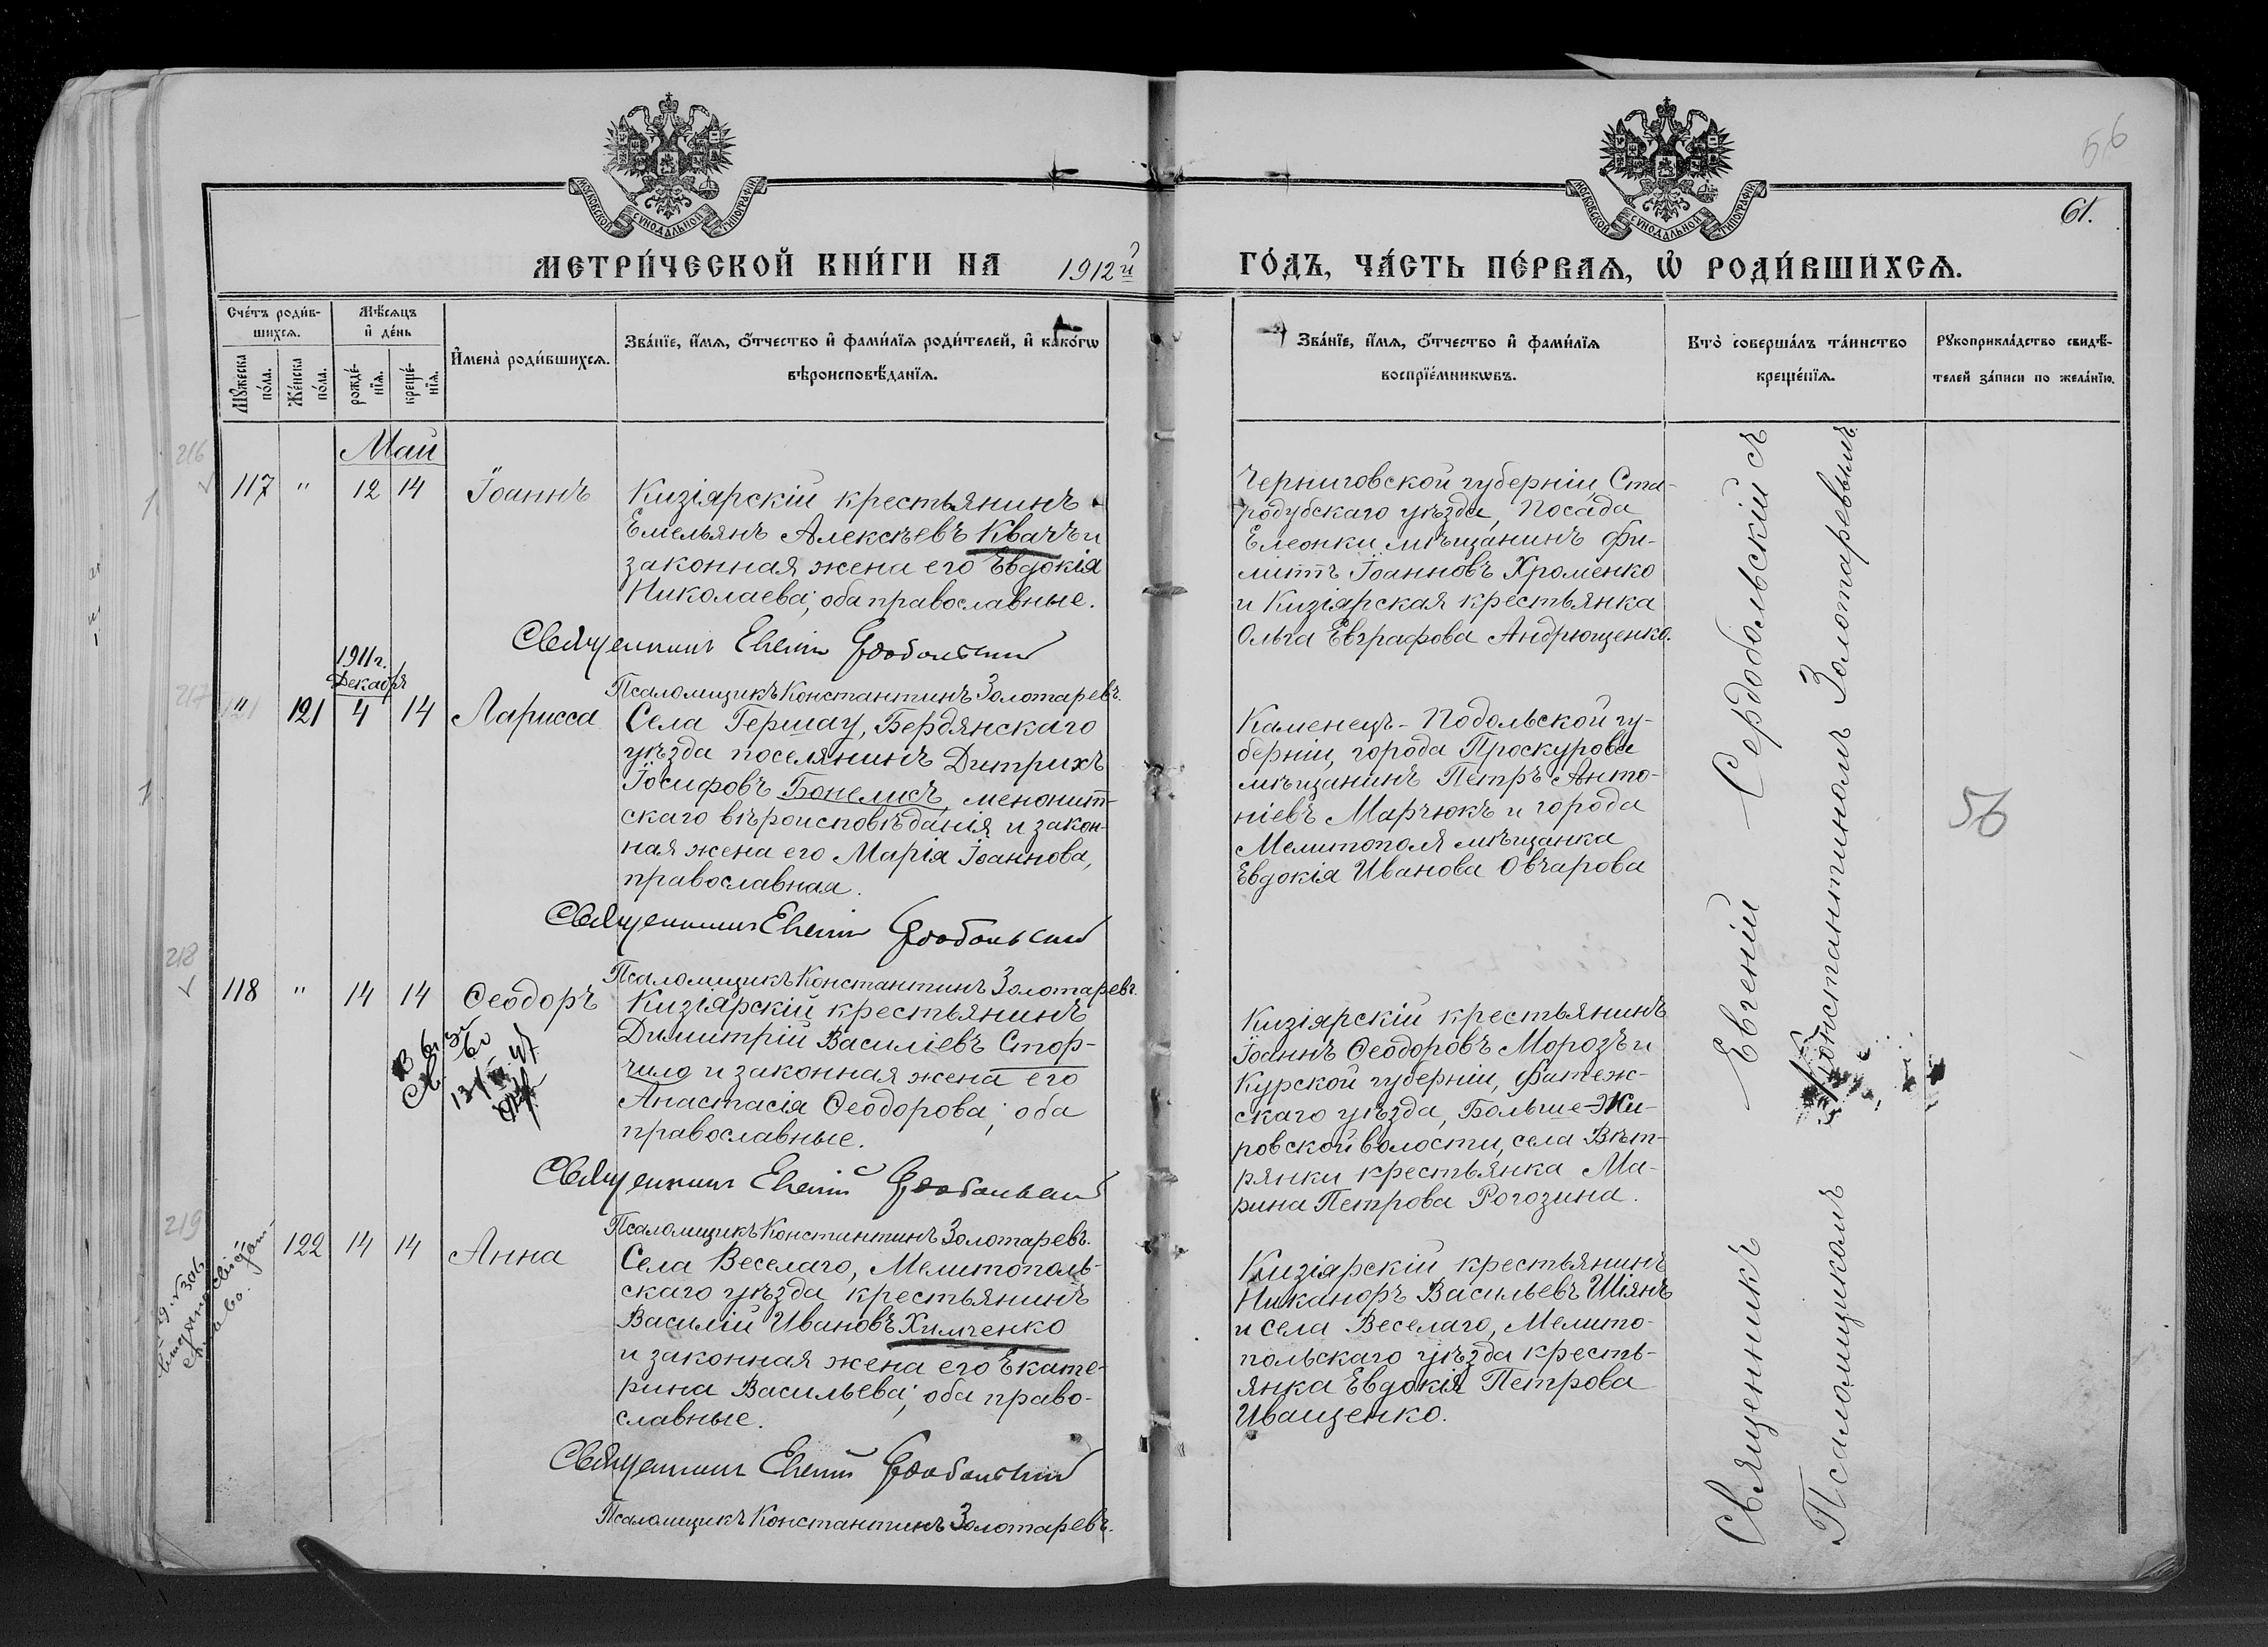 56
61.
МОСКОВСКОЙ СѴНОДАЛЬНОЙ ТИПОГРАФІИ
МОСКОВСКОЙ СѴНОДАЛЬНОЙ ТИПОГРАФІИ
МЕТРИ́ЧЕСКОЙ КНИ́ГИ НА 1912й
ГО́ДЪ, ЧА́СТЬ ПЕ́РВАѦ, Ѽ РОДИ́ВШИХСѦ.
Сче́тъ роди́в-
шихсѧ.
Мꙋжеска
по́ла.
Же́нска
по́ла.
Мѣ́сѧцъ
и҆ де́нь
рожде́-
нїѧ.
креще́-
нїѧ.
И҆мена̀ роди́вшихсѧ.
Зва́нїе, и҆́мѧ, ѻ҆́тчество и҆ фами́лїѧ роди́телей, и҆ како́гѡ
вѣроисповѣ́данїѧ.
Зва́нїе, и҆́мѧ, ѻ҆́тчество и҆ фами́лїѧ
воспрїе́мникѡвъ.
Кто̀ соверша́лъ та́инство
креще́нїѧ.
Рꙋкоприкла́дство свидѣ́-
телей за́писи по жела́нїю.
Май
216
117 " 12 14 Іоаннъ
Кизіярскій крестьянинъ
Емельянъ Алексѣевъ Квачъ и
законная жена его Евдокія
Николаева; оба православные.
Священникъ Евгеній Сердобольскій
Псаломщикъ Константинъ Золотаревъ.
Черниговской губерніи, Ста-
родубскаго уѣзда, Посада
Елеонки мѣщанинъ Фи-
липпъ Іоанновъ Хроменко
и Кизіярская крестьянка
Ольга Евграфова Андрющенко.
1911 г.
Декабрь
217
" 121 4 14 Ларисса
Села Гершау, Бердянскаго
уѣзда поселянинъ Дитрихъ
Іосифовъ Бонеликъ, менонит-
скаго вѣроисповѣданія и закон-
ная жена его Марія Іоаннова,
православная.
Священникъ Евгеній Сердобольскій
Псаломщикъ Константинъ Золотаревъ.
Каменецъ-Подольской гу-
берніи, города Проскурова
мѣщанинъ Петръ Анто-
ніевъ Марчюкъ и города
Мелитополя мѣщанка
Евдокія Иванова Овчарова
56
218
118 " 14 14 Ѳеодоръ
Кизіярскій крестьянинъ
Димитрій Василіевъ Стор-
чило и законная жена его
Анастасія Ѳеодорова; оба
православные.
Священникъ Евгеній Сердобольскій
Псаломщикъ Константинъ Золотаревъ.
Кизіярскій крестьянинъ
Іоаннъ Ѳеодоровъ Морозъ и
Курской губерніи, Фатеж-
скаго уѣзда, Больше-Жи-
ровской волости, села Вѣт-
рянки крестьянка Ма-
рина Петрова Рогозина.
219
" 122 14 14 Анна
Села Веселаго, Мелитополь-
скаго уѣзда крестьянинъ
Василій Ивановъ Химченко
и законная жена его Екате-
рина Васильева; оба право-
славные.
Священникъ Евгеній Сердобольскій
Псаломщикъ Константинъ Золотаревъ.
Кизіярскій крестьянинъ
Никаноръ Васильевъ Шіянъ
и села Веселаго, Мелито-
польскаго уѣзда кресть-
янка Евдокія Петрова
Иващенко.
Священникъ Евгеній Сердобольскій съ
Псаломщикомъ Константиномъ Золотаревымъ.